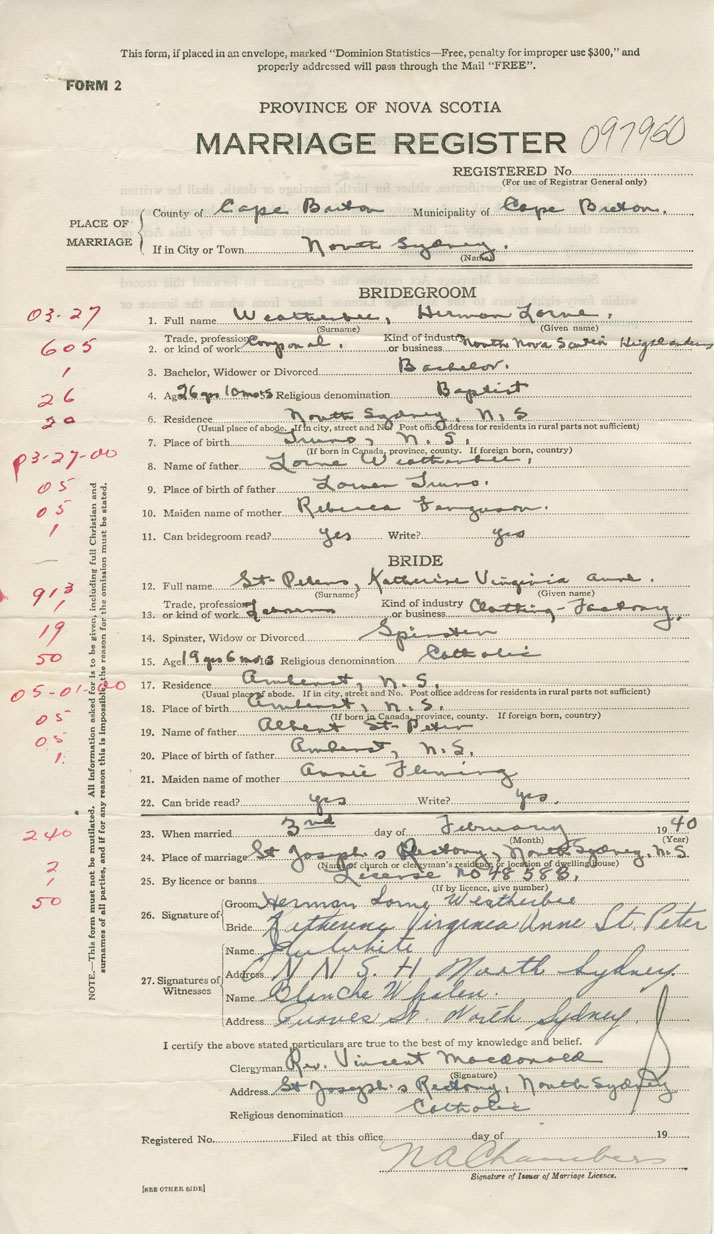 This form, if placed in an envelope, marked "Dominion Statistics—Free, penalty for improper use $300," and
properly addressed will pass through the Mail "FREE".
FORM 2
PROVINCE OF NOVA SCOTIA
MARRIAGE REGISTER 097950
REGISTERED No.
(For use of Registrar General only)
PLACE OF MARRIAGE
County of Cape Breton Municipality of Cape Breton.
If in City or Town North Sydney.
(Name)
BRIDEGROOM
03-27 1. Full name Weatherbee, Herman Lorne.
(Surname) (Given name)
605 2. Trade, profession or kind of work Corporal. Kind of industry or business North Nova Scotia Highlanders
1 3. Bachelor, Widower or Divorced Bachelor.
26 4. Age 26 yrs 10 mos 5 Religious denomination Baptist
20 6. Residence North Sydney, N.S
(Usual place of abode. If in city, street and No. Post office address for residents in rural parts not sufficient)
03-27-00 7. Place of birth Truro, N.S.
(If born in Canada, province, county. If foreign born, country)
8. Name of father Lorne Weatherbee,
05 9. Place of birth of father Lower Truro.
05 10. Maiden name of mother Rebecca Ferguson.
1 11. Can bridegroom read? Yes Write? Yes
BRIDE
12. Full name St-Peters, Katherine Virginia Anne.
(Surname) (Given name)
913 13. Trade, profession or kind of work Kind of industry or business Clothing-Factory.
1
19 14. Spinster, Widow or Divorced Spinster
50 15. Age 19 yrs 6 mos Religious denomination Catholic
05-01-00 17. Residence Amherst, N.S.
(Usual place of abode. If in city, street and No. Post office address for residents in rural parts not sufficient)
05 18. Place of birth Amherst, N.S.
(If born in Canada, province, county. If foreign born, country)
05 19. Name of father Albert St-Peter
1 20. Place of birth of father Amherst, N.S.
21. Maiden name of mother Annie Fleming
22. Can bride read? yes Write? yes.
240 23. When married 3rd day of February 1940
(Month) (Year)
2 24. Place of marriage St Joseph's Rectory, North Sydney, N.S.
(Name of church or clergyman's residence or location of dwelling house)
1 25. By licence or banns License no 48588,
(If by licence, give number)
50 26. Signature of
Groom Herman Lorne Weatherbee
Bride Katherine Virginia Anne St. Peter
27. Signatures of Witnesses
Name White
Address N N S H North Sydney
Name Blanche Whalen.
Address St. North Sydney
I certify the above stated particulars are true to the best of my knowledge and belief.
Clergyman Rev. Vincent Macdonald
(Signature)
Address St Joseph's Rectory, North Sydney
Religious denomination Catholic
Registered No. Filed at this office day of 19
N A Chambers
Signature of Issuer of Marriage Licence.
[SEE OTHER SIDE]
NOTE.—This form must not be mutilated. All information asked for is to be given, including full Christian and
surnames of all parties, and if for any reason this is impossible, the reason for the omission must be stated.